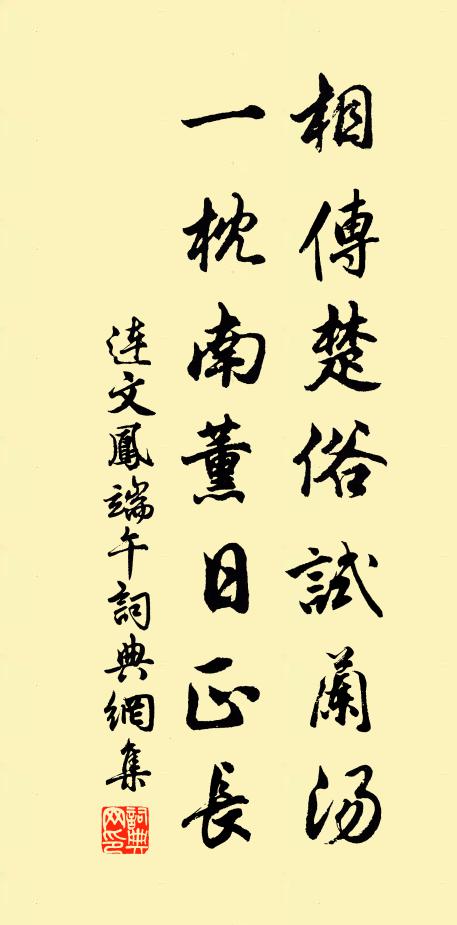 相傳楚俗試蘭湯
一枕南薰日正長
連文鳳端午詞典網集
詞典網印